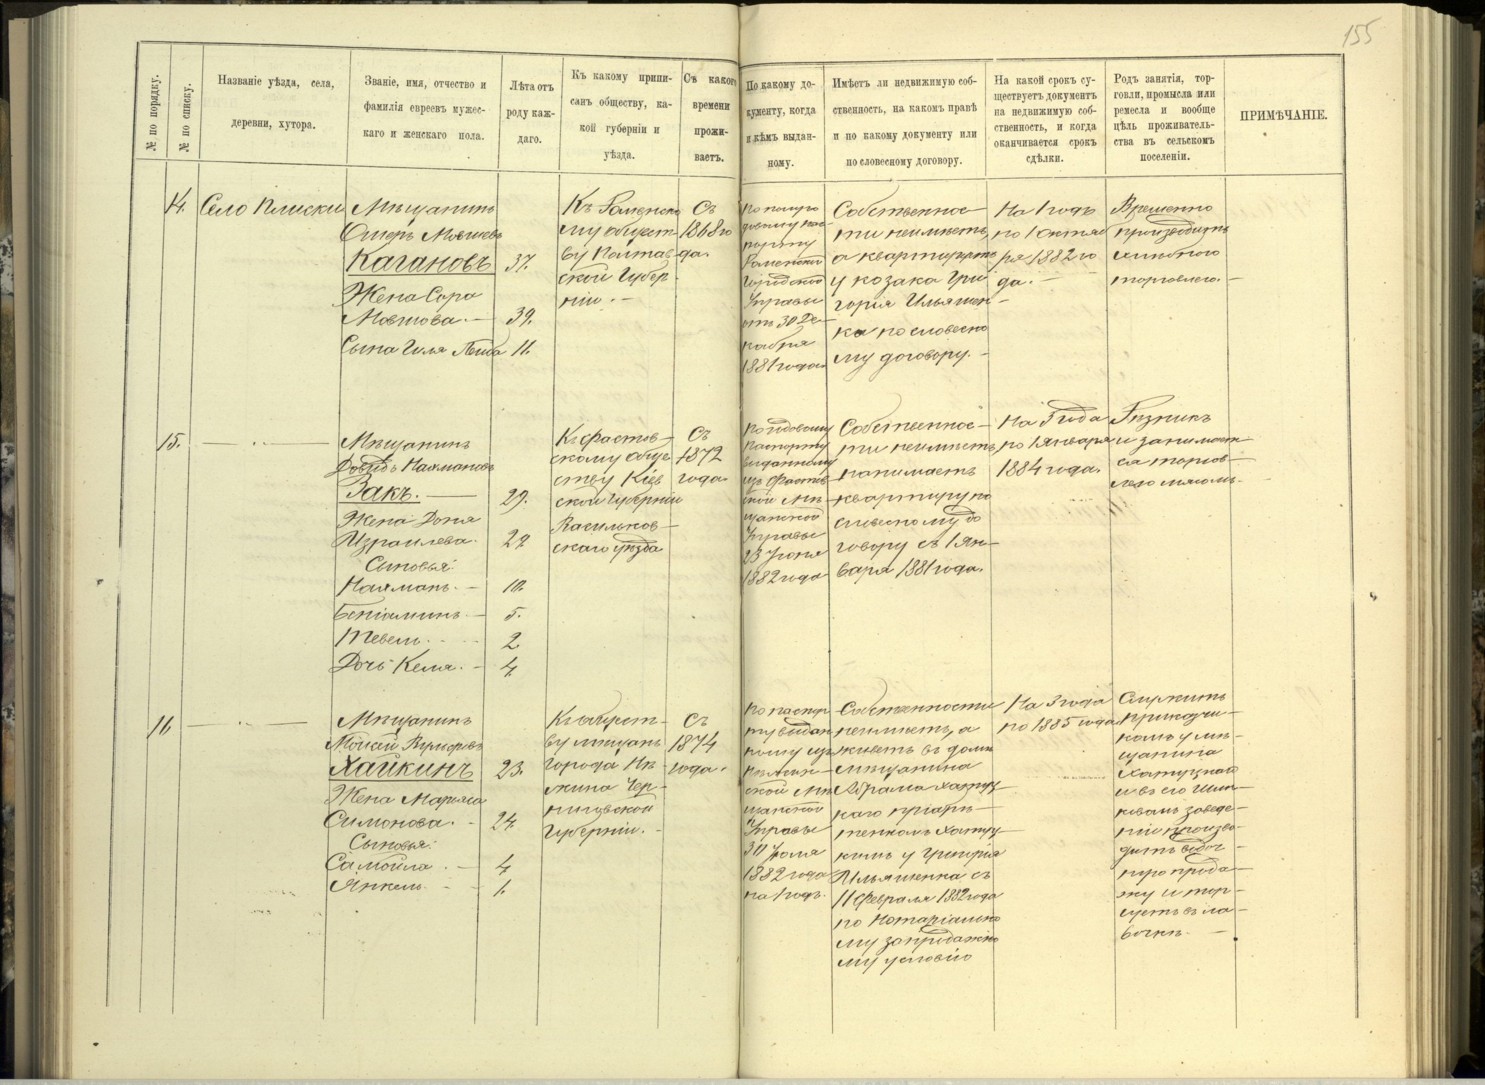 155
№ по порядку.
№ по списку.
Названіе уѣзда, села,
деревни, хутора.
Званіе, имя, отчество и
фамилія евреевъ мужес-
каго и женскаго пола.
Лѣта отъ
роду каж-
даго.
Къ какому припи-
санъ обществу, ка-
кой губерніи и
уѣзда.
Съ какого
времени
прожи-
ваетъ.
По какому до-
кументу, когда
и кѣмъ выдан-
ному.
Имѣетъ ли недвижимую соб-
ственность, на какомъ правѣ
и по какому документу или
по словесному договору.
На какой срокъ су-
ществуетъ документъ
на недвижимую соб-
ственность, и когда
оканчивается срокъ
сдѣлки.
Родъ занятія, тор-
говли, промысла или
ремесла и вообще
цѣль проживатель-
ства въ сельскомъ
поселеніи.
ПРИМѢЧАНІЕ.
14.
Село Плиски
Мѣщанинъ
Мовшевъ
Кагановъ 37.
Жена Сора
Мовшова. — 39.
Сына Гиля Лейба 11.
Къ Роменско
му общест-
ву Полтав-
ской Губер-
ніи. —
Съ
1868 го
да.
По полуго
довому пас-
порту
Роменской
Городской
Управы
отъ 30 Де-
кабря
1881 года.
Собственнос-
ти неимѣетъ,
а квартируетъ
у козака Гри
горія Ильяшен-
ка по словесно
му договору. —
На 1 годъ
по 1 Октяб
ря 1882 го
да. —
Временно
производитъ
торговлею. —
15.
Мѣщанинъ
Довидъ Нахмановъ
Закъ. — 29.
Жена Доня
Израилева. 29
Сыновья:
Нахманъ. — 10.
Беніаминъ — 5.
Тевель. 2
Дочь Келя. — 4.
Къ Фастов-
скому обще
ству Кіев
ской Губерніи
Васильков-
скаго уѣзда
Съ
1872
года.
По годовому
Паспорту
выданному
изъ Фастов
ской Мѣ-
щанской
Управы
23 Іюня
1882 года
Собственнос-
ти неимѣетъ
нанимаетъ
квартиру по
словесному до
говору съ 1 Ян-
варя 1881 года.
На 3 года
по 1 Января
1884 года.
Рѣзникъ
и занимает
ся торгов-
лею мясомъ.
16
Мѣщанинъ
Хайкинъ 23.
Жена Марьяся
Симонова. — 24.
Сыновья:
Самойла. — 4
Янкель. — 1.
Къ общест-
ву мѣщанъ
города Нѣ-
жина Чер-
ниговской
Губерніи. —
Съ
1874
года.
По паспор
ту выдан
ному изъ
Нѣжин-
ской Мѣ
щанской
Управы
30 Іюля
1882 года
на 1 годъ.
Собственности
неимѣетъ, а
живетъ въ домѣ
мѣщанина
Абрама Хатуц-
каго пріобрѣ-
тенномъ Хатуц-
кимъ у Григорія
Ильяшенка съ
11 Февраля 1882 года
по Нотаріально
му запродажно
му условію
На 3 года
по 1885 года
Служитъ
Прикащи-
комъ у мѣ-
щанина
Хатуцкаго
и въ его шин-
ковомъ заведе-
ніи произво-
дитъ
прода-
жу и тор-
гуетъ въ ла-
вочкѣ. —